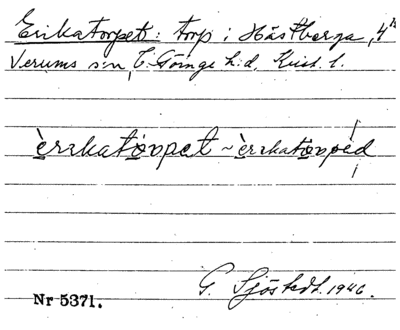 Erikatorpet: torp i Hästberga, 4ⁿ
Verums s:n, V. Göinge h:d, Krist. l.
èrɩkatòrpet ~ èrɩkatòrpèd
G. Sjöstedt. 1946.
Nr 5371.